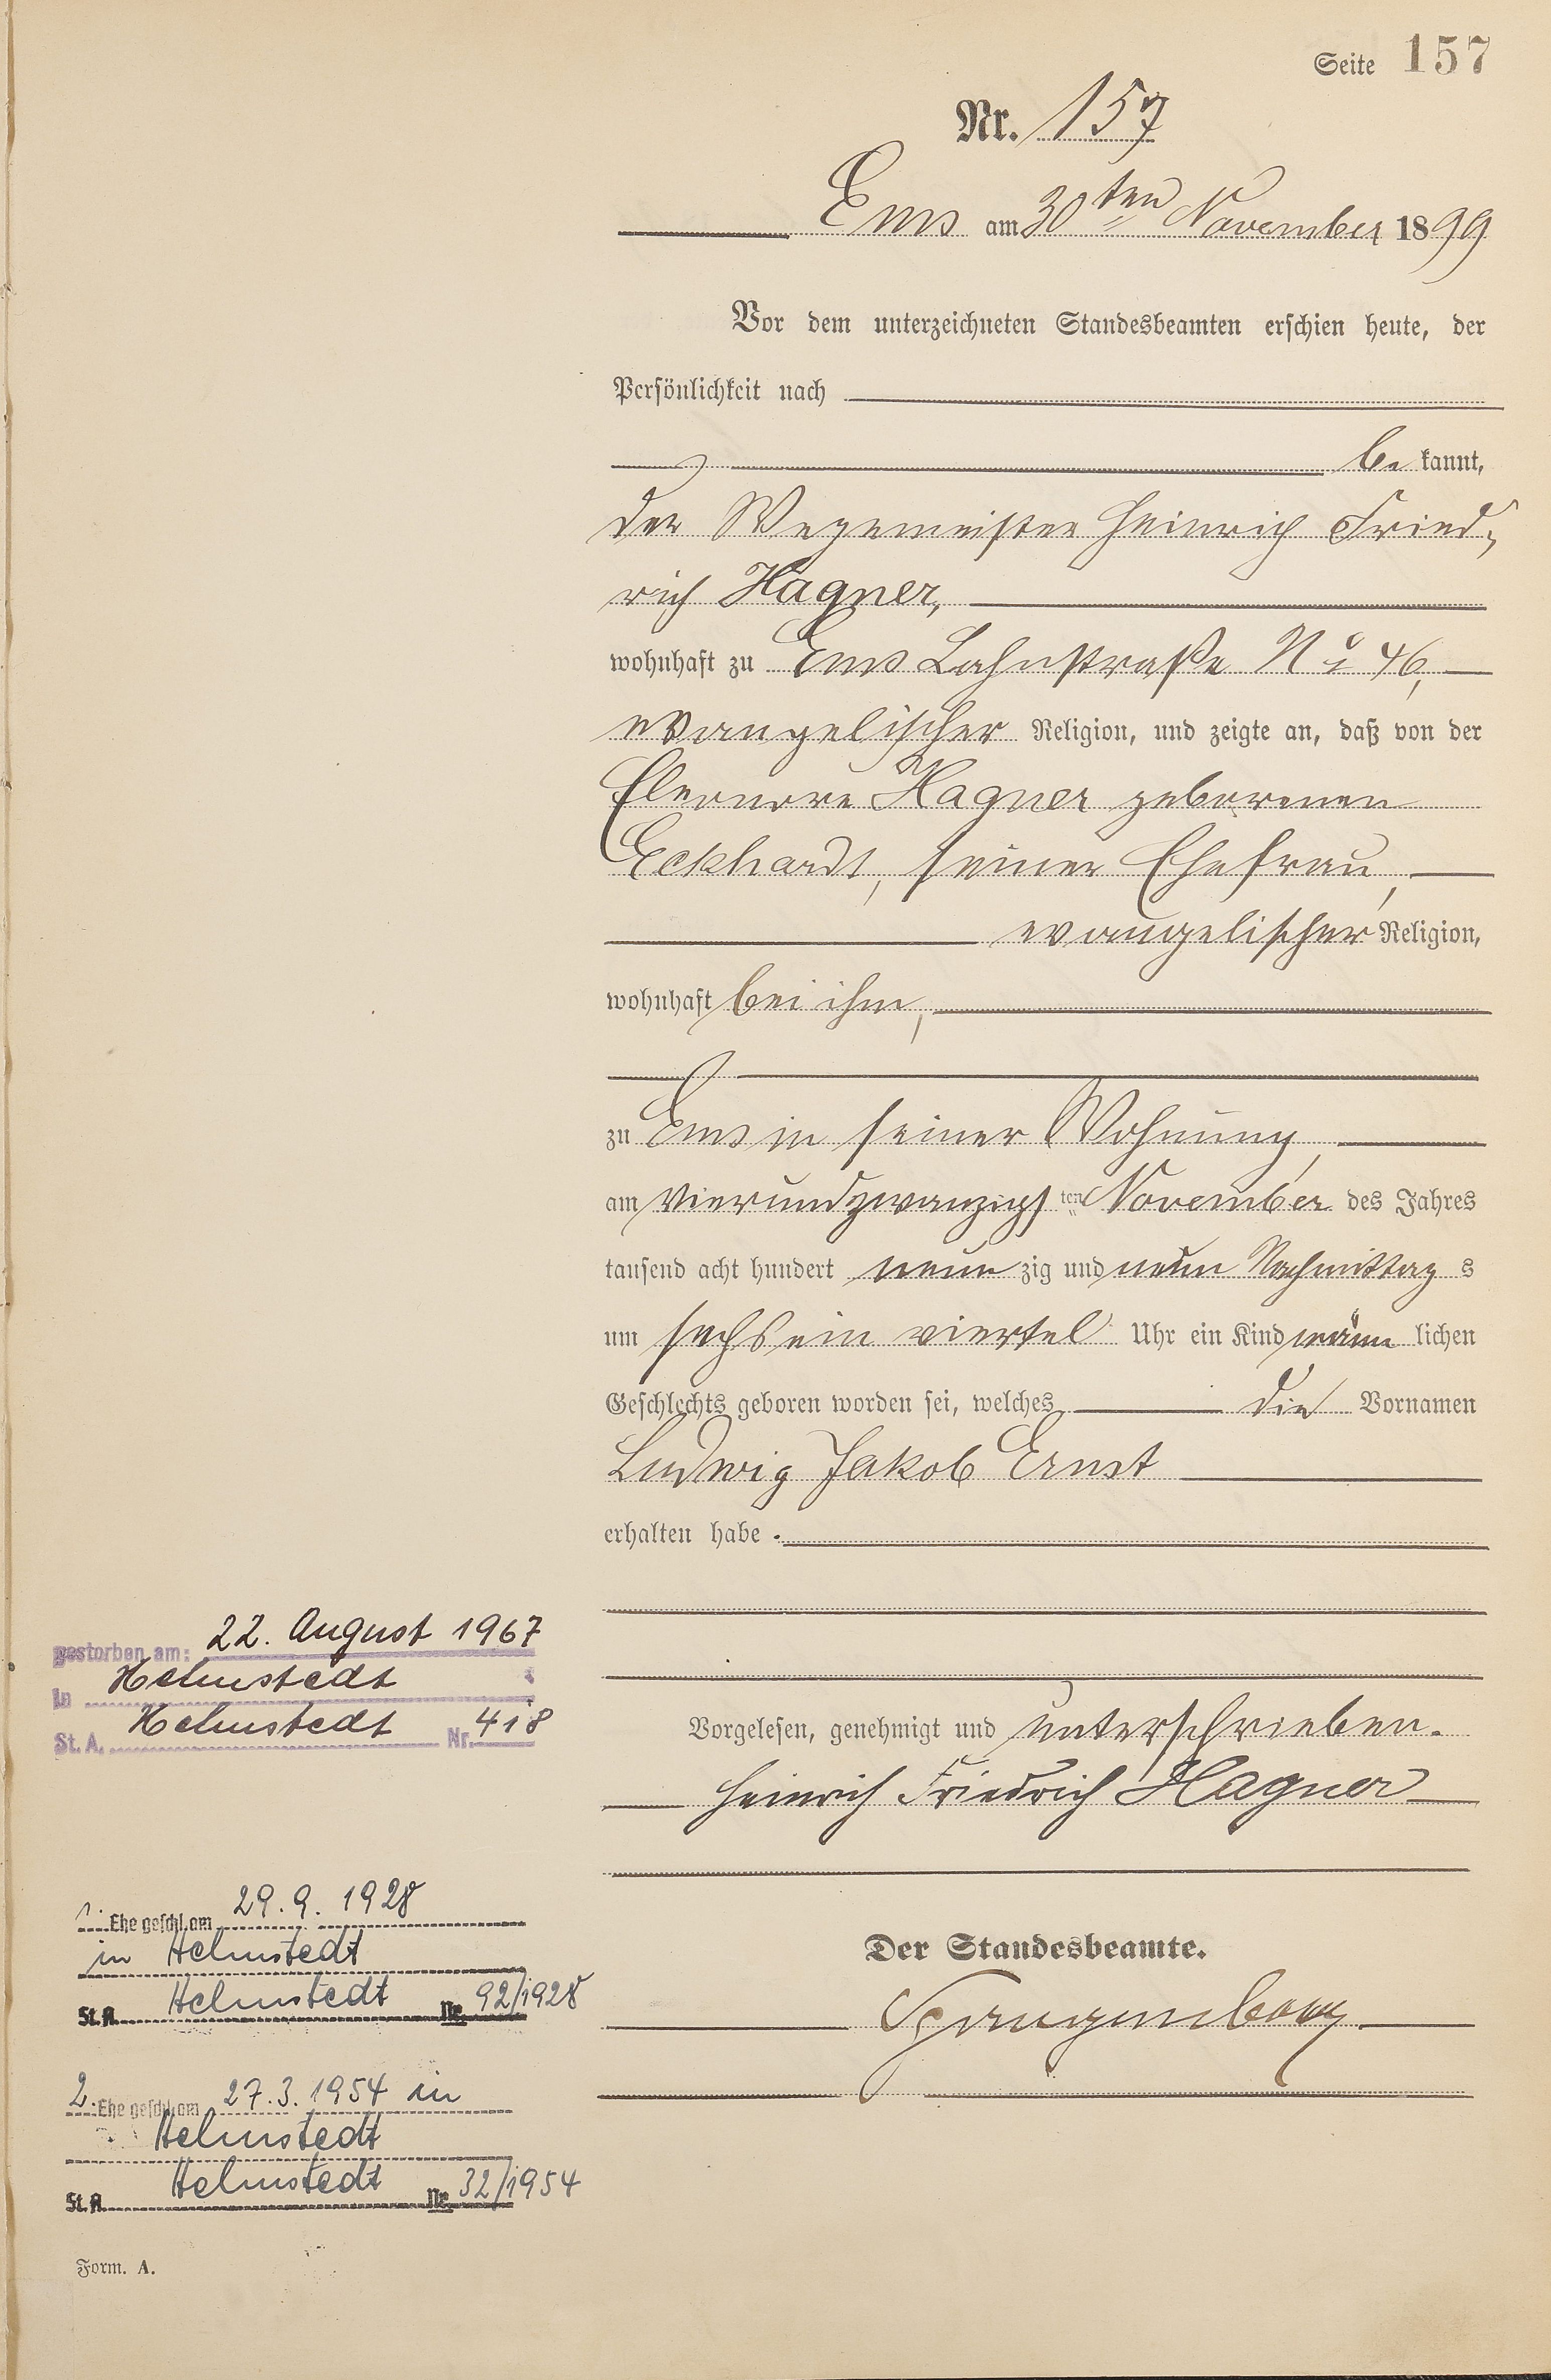 Seite 157
Nr. 157
Ems am 30ten November 1899
Vor dem unterzeichneten Standesbeamten erschien heute, der
Persönlichkeit nach
be kannt,
der Wegemeister Heinrich Fried-
rich Hagner,
wohnhaft zu Ems Lahnstraße No 46,
evangelischer Religion, und zeigte an, daß von der
Eleonore Hagner geborenen
Eckhardt, seiner Ehefrau,
evangelischer Religion,
wohnhaft bei ihm,
zu Ems in seiner Wohnung,
am vierundzwanzigsten November des Jahres
tausend acht hundert neun zig und neun Nachmittag s
um sechs ein viertel Uhr ein Kind männ lichen
Geschlechts geboren worden sei, welches die Vornamen
Ludwig Jakob Ernst
erhalten habe.
Vorgelesen, genehmigt und unterschrieben.
Heinrich Friedrich Hagner
Der Standesbeamte.
gestorben am: 22. August 1967
in Helmstedt
St. A. Helmstedt Nr. 418
1. Ehe geschl. am 29.9.1928
in Helmstedt
St. A. Helmstedt Nr. 92/1928
2. Ehe geschl. am 27.3.1954 in
Helmstedt
St. A. Helmstedt Nr. 32/1954
Form. A.